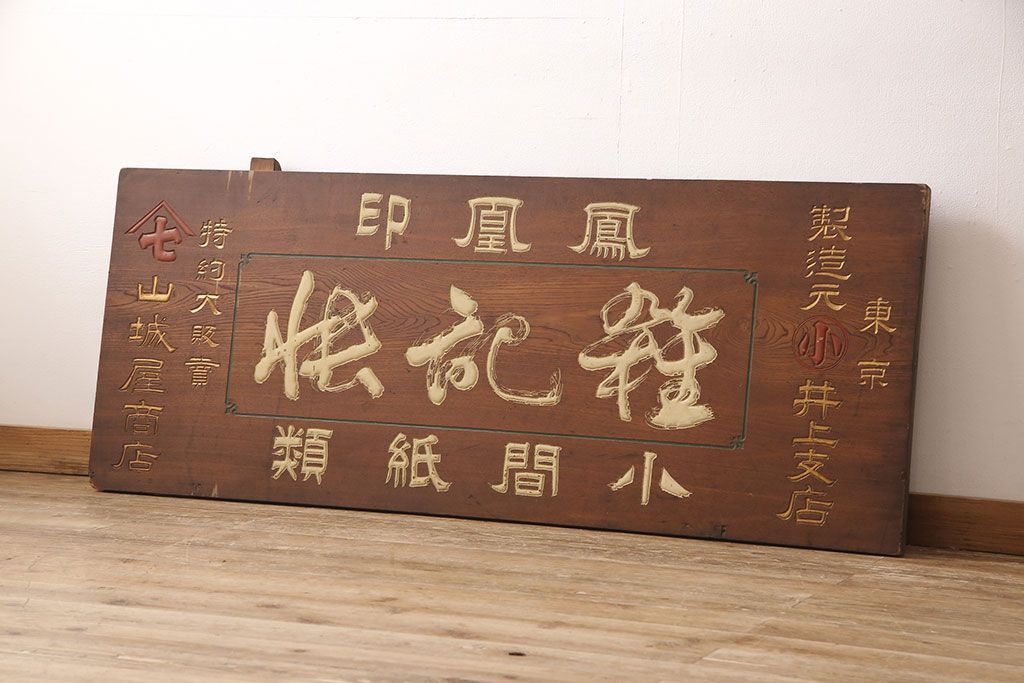 東京
製造元小井上支店
鳳凰印
雑記帳
小間紙類
特約大販賣
七山城屋商店